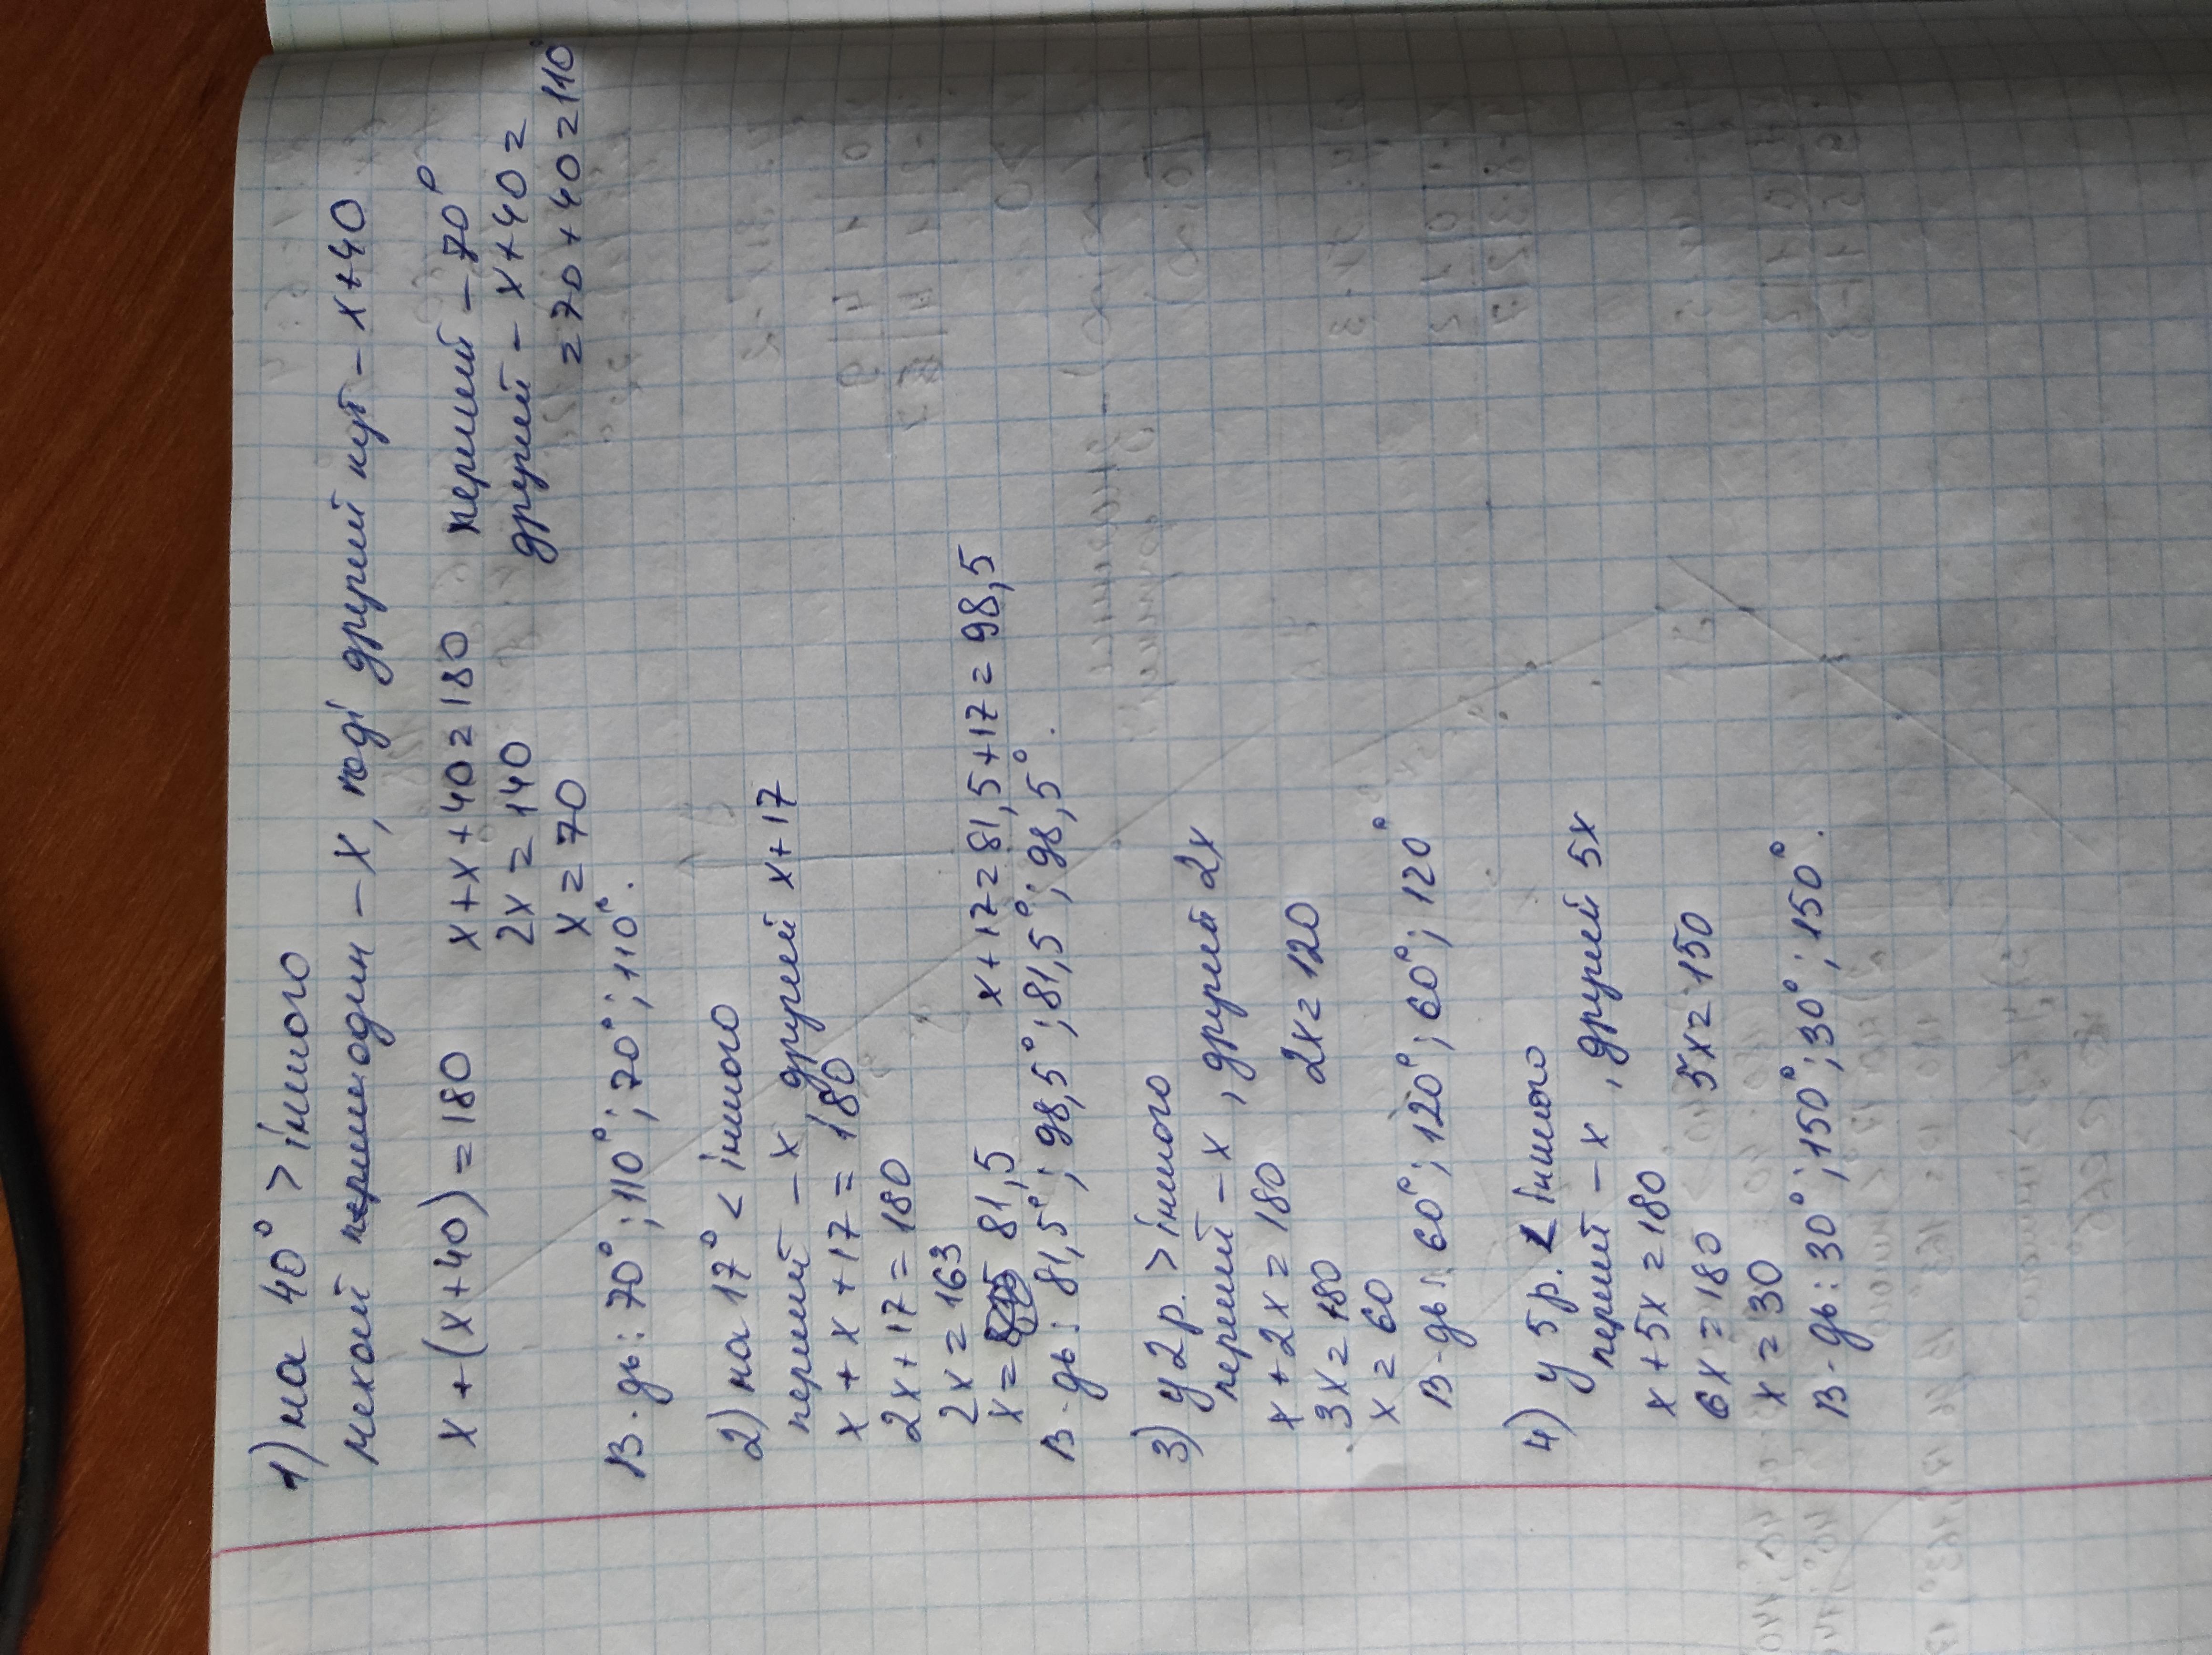 1) на 40° > іншого
нехай один – x, тоді другий кут – x+40
x+(x+40)=180 x+x+40=180 перший – 70°
2x=140 другий – x+40=
x=70 =70+40=110°
В-дь: 70°; 110°; 70°; 110°.
2) на 17° < іншого
перший – x другий x+17
x+x+17=180
2x+17=180
2x=163
x=81,5 x+17=81,5+17=98,5
В-дь: 81,5°; 98,5°; 81,5°; 98,5°.
3) у 2 р. > іншого
перший – x, другий 2x
x+2x=180
3x=180 2x=120
x=60
В-дь: 60°; 120°; 60°; 120°
4) у 5 р. < іншого
перший – x, другий 5x
x+5x=180
6x=180 5x=150
x=30
В-дь: 30°; 150°; 30°; 150°.